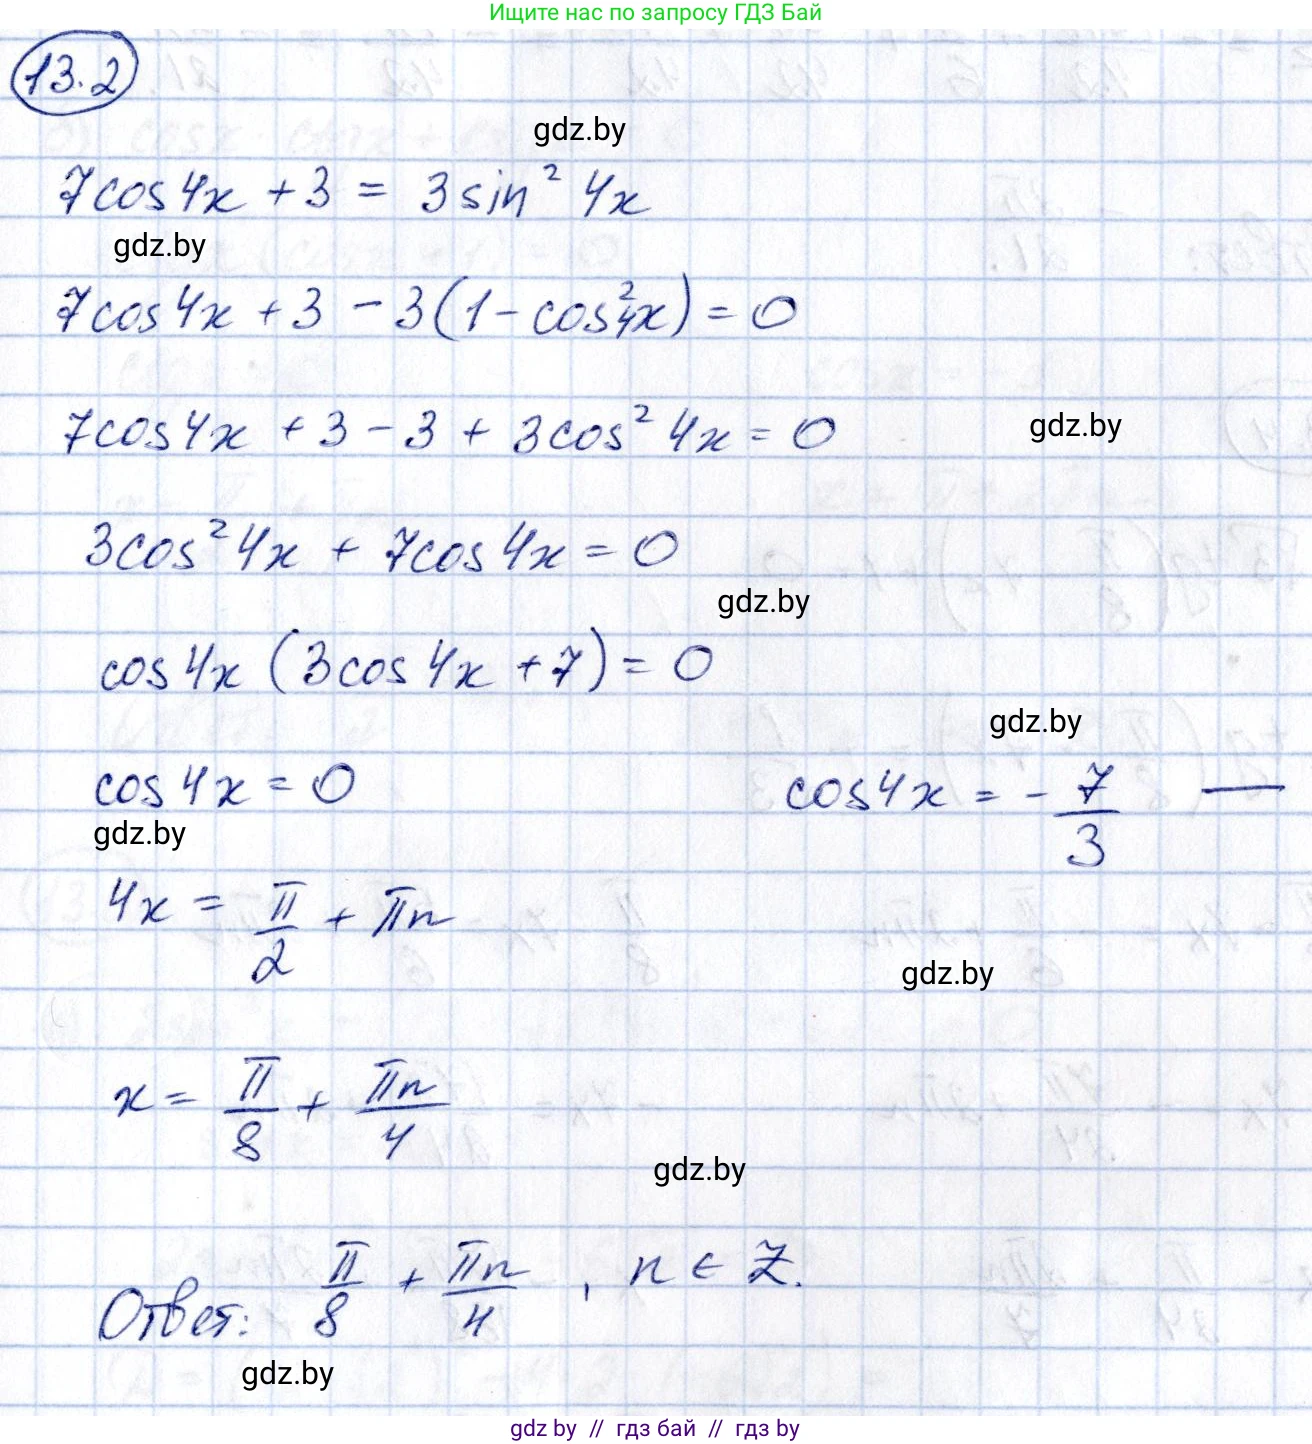 Ищите нас по запросу ГДЗ Бай
13.2
gdz.by
7cos4x + 3 = 3sin² 4x
gdz.by
7cos4x + 3 - 3(1 - cos²4x) = 0
7cos4x + 3 - 3 + 3cos² 4x = 0
gdz.by
3cos² 4x + 7cos4x = 0
gdz.by
cos4x (3cos4x + 7) = 0
gdz.by
cos4x = 0   cos4x = -7/3 —
gdz.by
4x = π/2 + πn
gdz.by
x = π/8 + πn/4
gdz.by
Ответ: π/8 + πn/4, n ∈ Z.
gdz.by
gdz.by // гдз бай // gdz.by